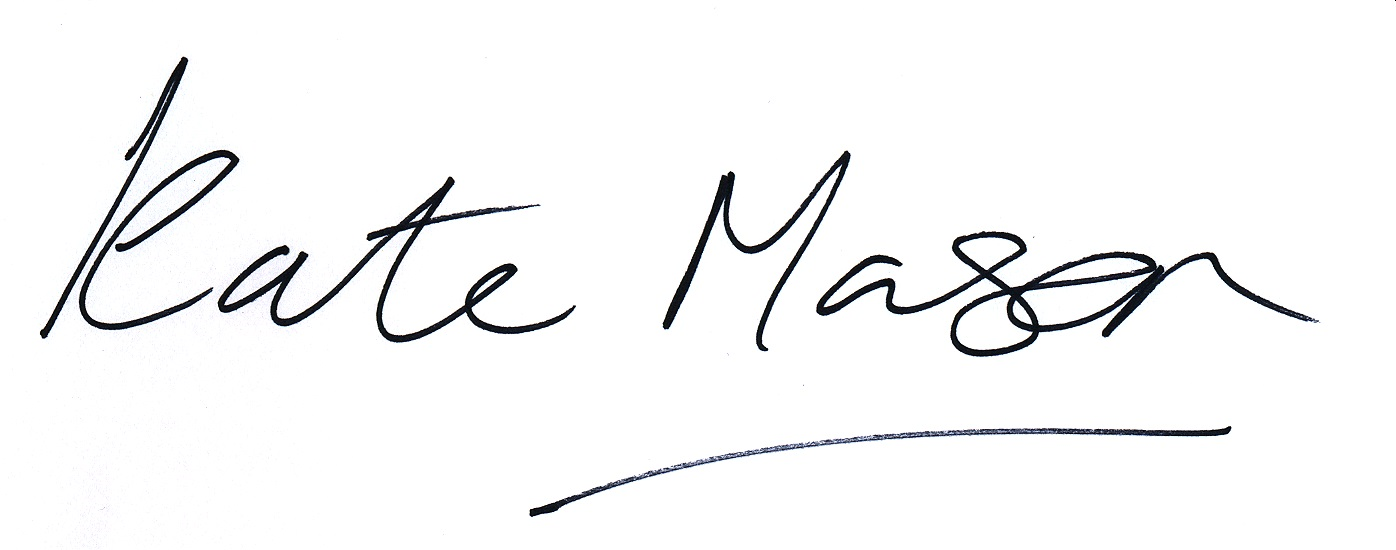 Kate Mason